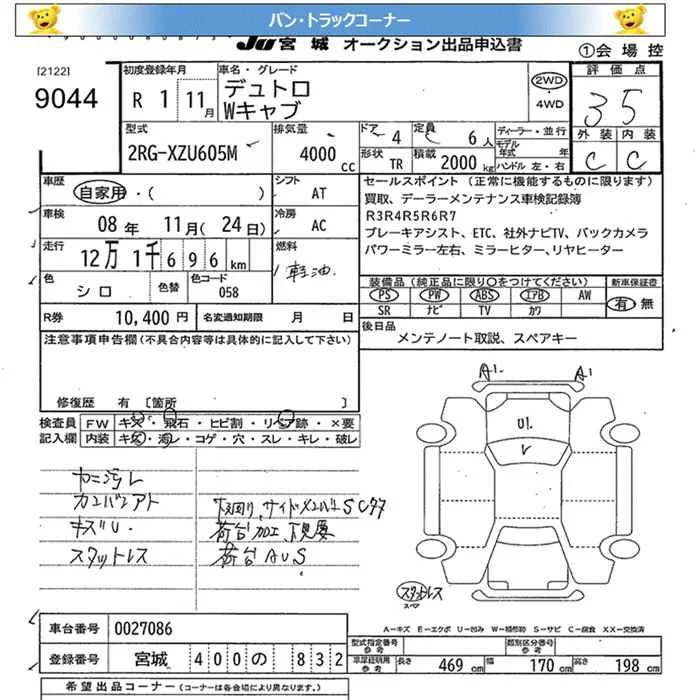 バン・トラックコーナー
JU 宮 城 オークション出品申込書
①会 場 控
[2122]
9044
初度登録年月
R 1 11月
車名・グレード
デュトロ
Wキャブ
2WD
・4WD
評 価 点
3 5
外 装 内 装
C C
型式
2RG-XZU605M
排気量
4000 CC
ドア 4
定員 6 人
形状 TR
積載 2000 kg
ディーラー・並行
モデル年式 年
ハンドル 左・右
車歴
自家用・( )
シフト
AT
セールスポイント (正常に機能するものに限ります)
買取、デーラーメンテナンス車検記録簿
R3R4R5R6R7
ブレーキアシスト、ETC、社外ナビTV、バックカメラ
パワーミラー左右、ミラーヒター、リヤヒーター
車検
08 年 11月( 24 日)
冷房
AC
走行
12万 1千 6 9 6 km
燃料
軽油
色
シロ
色替
色コード
058
装備品 (純正品に限り○をつけてください)
新車保証書
PS PW ABS エアB AW
SR ナビ TV カワ
有・無
R券 10,400 円
名変通知期限 月 日
後日品
メンテノート取説、スペアキー
注意事項申告欄(不具合内容等は具体的に記入して下さい)
修復歴 有 [箇所 ]
検査員
記入欄
FW キズ・飛石・ヒビ割・リペア跡・×要
内装 キズ・汚レ・コゲ・穴・スレ・キレ・破レ
A1. A1
U1.
カンバンアト
キズU.
スタットレス
荷台加工、下見要
荷台 A U S
スタットレス
スペア
A−キズ E−エクボ U−凹み W−補修跡 S−サビ C−腐食 XX−交換済
車台番号 0027086
登録番号 宮城 4 0 0 の 8 3 2
型式指定番号
参考
類別区分番号
参考
車庫証明用
参考
長さ 469 cm 幅 170 cm 高さ 198 cm
希望出品コーナー (コーナーは各会場により異なります。)